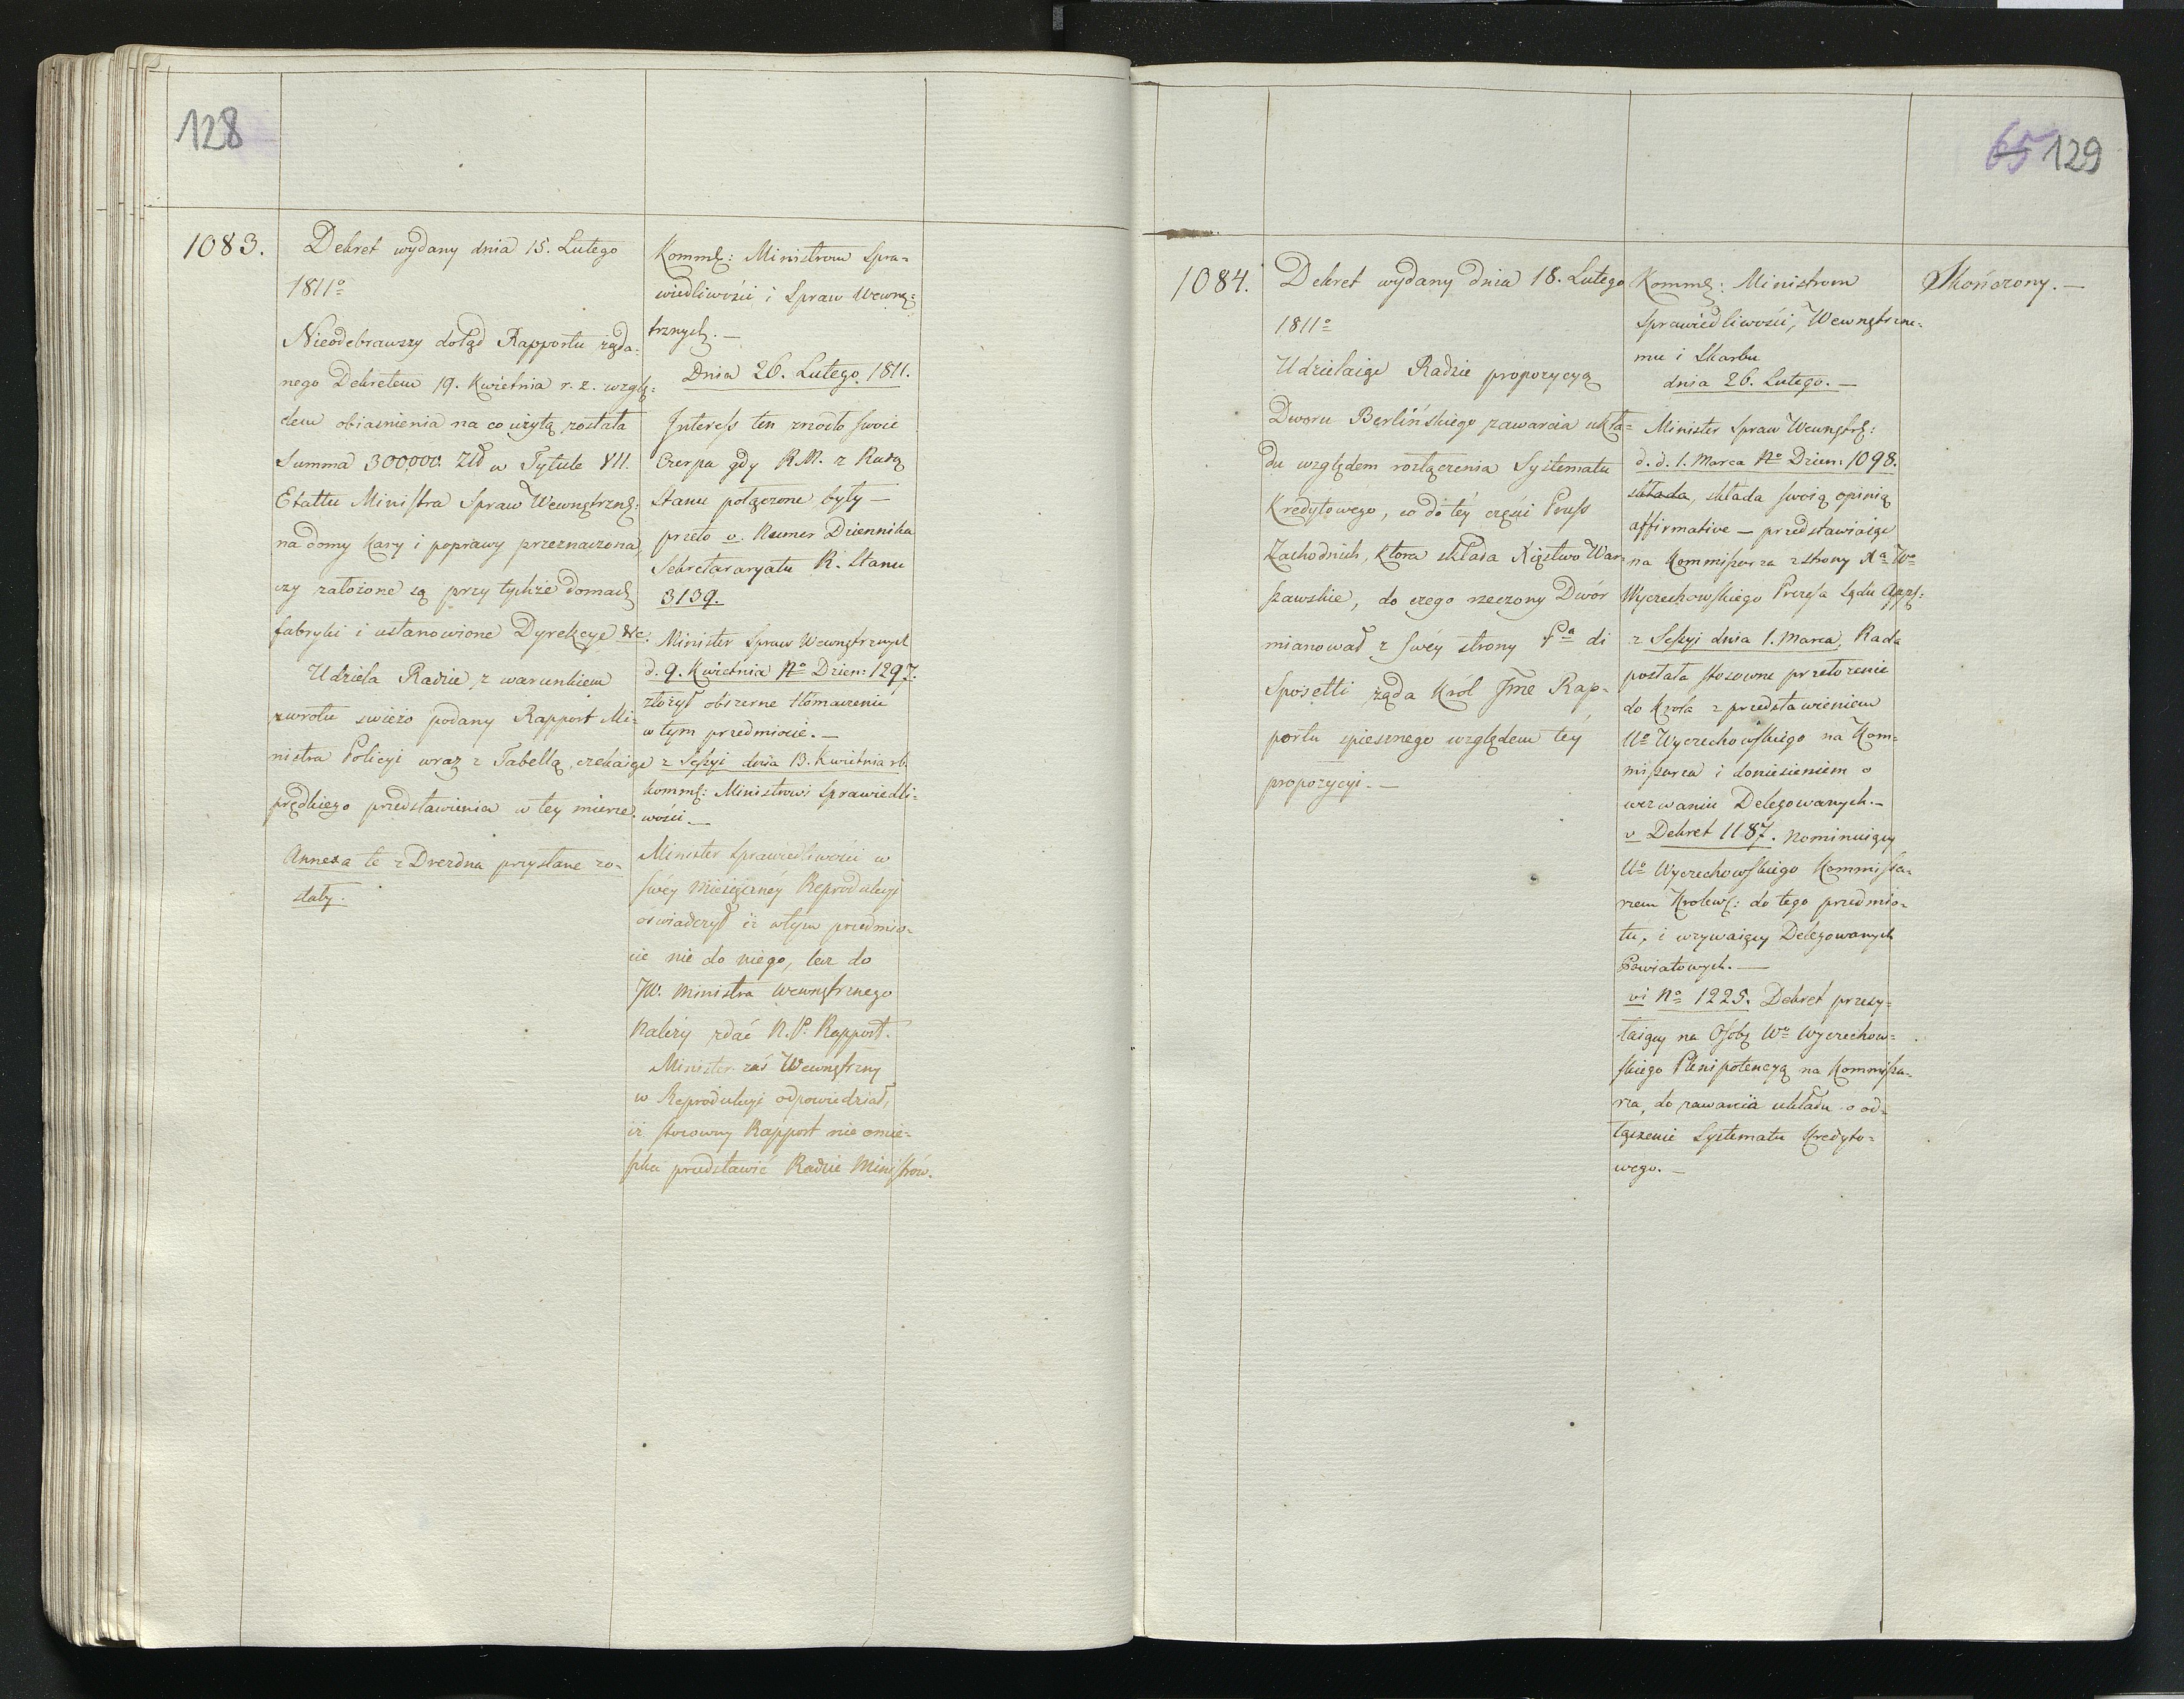 128
1083.
Dekret wydany dnia 15. Lutego
1811º
Nieodebrawszy dotąd Rapportu żąda=
nego Dekretem 19. Kwietnia r. z. wzglę=
dem obiasnienia na co użytą została
Summa 300000. Złł w Tytule VII.
Etattu Ministra Spraw Wewnętrzn:
na domy kary i poprawy przeznaczona,
czy założone są przy tychże domach
fabryki i ustanowione Dyrekcye &c.
Udziela Radzie z warunkiem
zwrotu swieżo podany Rapport Mi=
nistra Policyi wraz z Tabellą, czekaiąc
prędkiego przedstawienia w tey mierze.
Annexa te z Drezdna przysłane zo-
stały.
Komm: Ministrom Spra=
wiedliwości i Spraw Wewnę=
trznych. —
Dnia 26. Lutego 1811.
Interess ten zrzodło swoie
Czerpa gdy R.M. z Radą
Stanu połączone były —
przeto v. Numer Dziennika
Sekretararyatu R. Stanu
3139.
Minister Spraw Wewnętrznych
d. 9. Kwietnia Nº Dzien: 1297.
złożył obszerne tłómaczenie
w tym przedmiocie. —
z Sessyi dnia 13. Kwietnia rb.
komm: Ministrowi Sprawiedli=
wości. —
Minister Sprawiedliwości w
swéy Miesięcznéy Reprodukcyi
oświadczył iż w tym przedmio-
cie nie do niego, lecz do
JW. Ministra Wewnętrznego
Należy zdać N.P. Rapport.
Minister zaś Wewnętrzny
w Reprodukcyi odpowiedział,
iż stosowny Rapport nie omie-
szka przedstawić Radzie Ministrów.
65 129
1084.
Dekret wydany dnia 18. Lutego
1811º
Udzielaiąc Radzie propozycyą
Dworu Berlińskiego zawarcia ukła=
du względem rozłączenia Systematu
Kredytowego, co do téy części Pruss
Zachodnich, ktora składa Xięstwo War-
szawskie, do czego rzeczony Dwór
mianował z swéy strony Pª di
Sposetti żąda Król Jmć Rap-
portu spiesznego względem téy
propozycyi. —
Komm: Ministrom
Sprawiedliwości, Wewnętrzne-
mu i Skarbu
dnia 26. Lutego. —
Minister Spraw Wewnętrz:
d. d. 1. Marca Nº Dzien: 1098.
składa, składa swoią opinią
affirmative — przedstawiaiąc
na Kommissarza z strony Xª Wº
Wyczechowskiego Prezesa Sądu App:
z Sessyi dnia 1. Marca, Rada
posłała stosowne przełożenie
do Krola z przedstawieniem
Uº Wyczechowskiego na Kom=
missarza i doniesieniem o
wezwaniu Delegowanych. —
v Dekret 1187. Nominuiący
Uº Wyczechowskiego Kommissa-
rzem Krolews: do tego przedmio-
tu, i wzywaiący Delegowanych
Powiatowych. —
vi Nº 1225. Dekret przesy=
łaiący na Osobę Wº Wyczechow=
skiego Plenipotencyą na Kommissa-
rza, do zawarcia układu o od=
łączenie Systematu Kredyto=
wego. —
Skończony. —